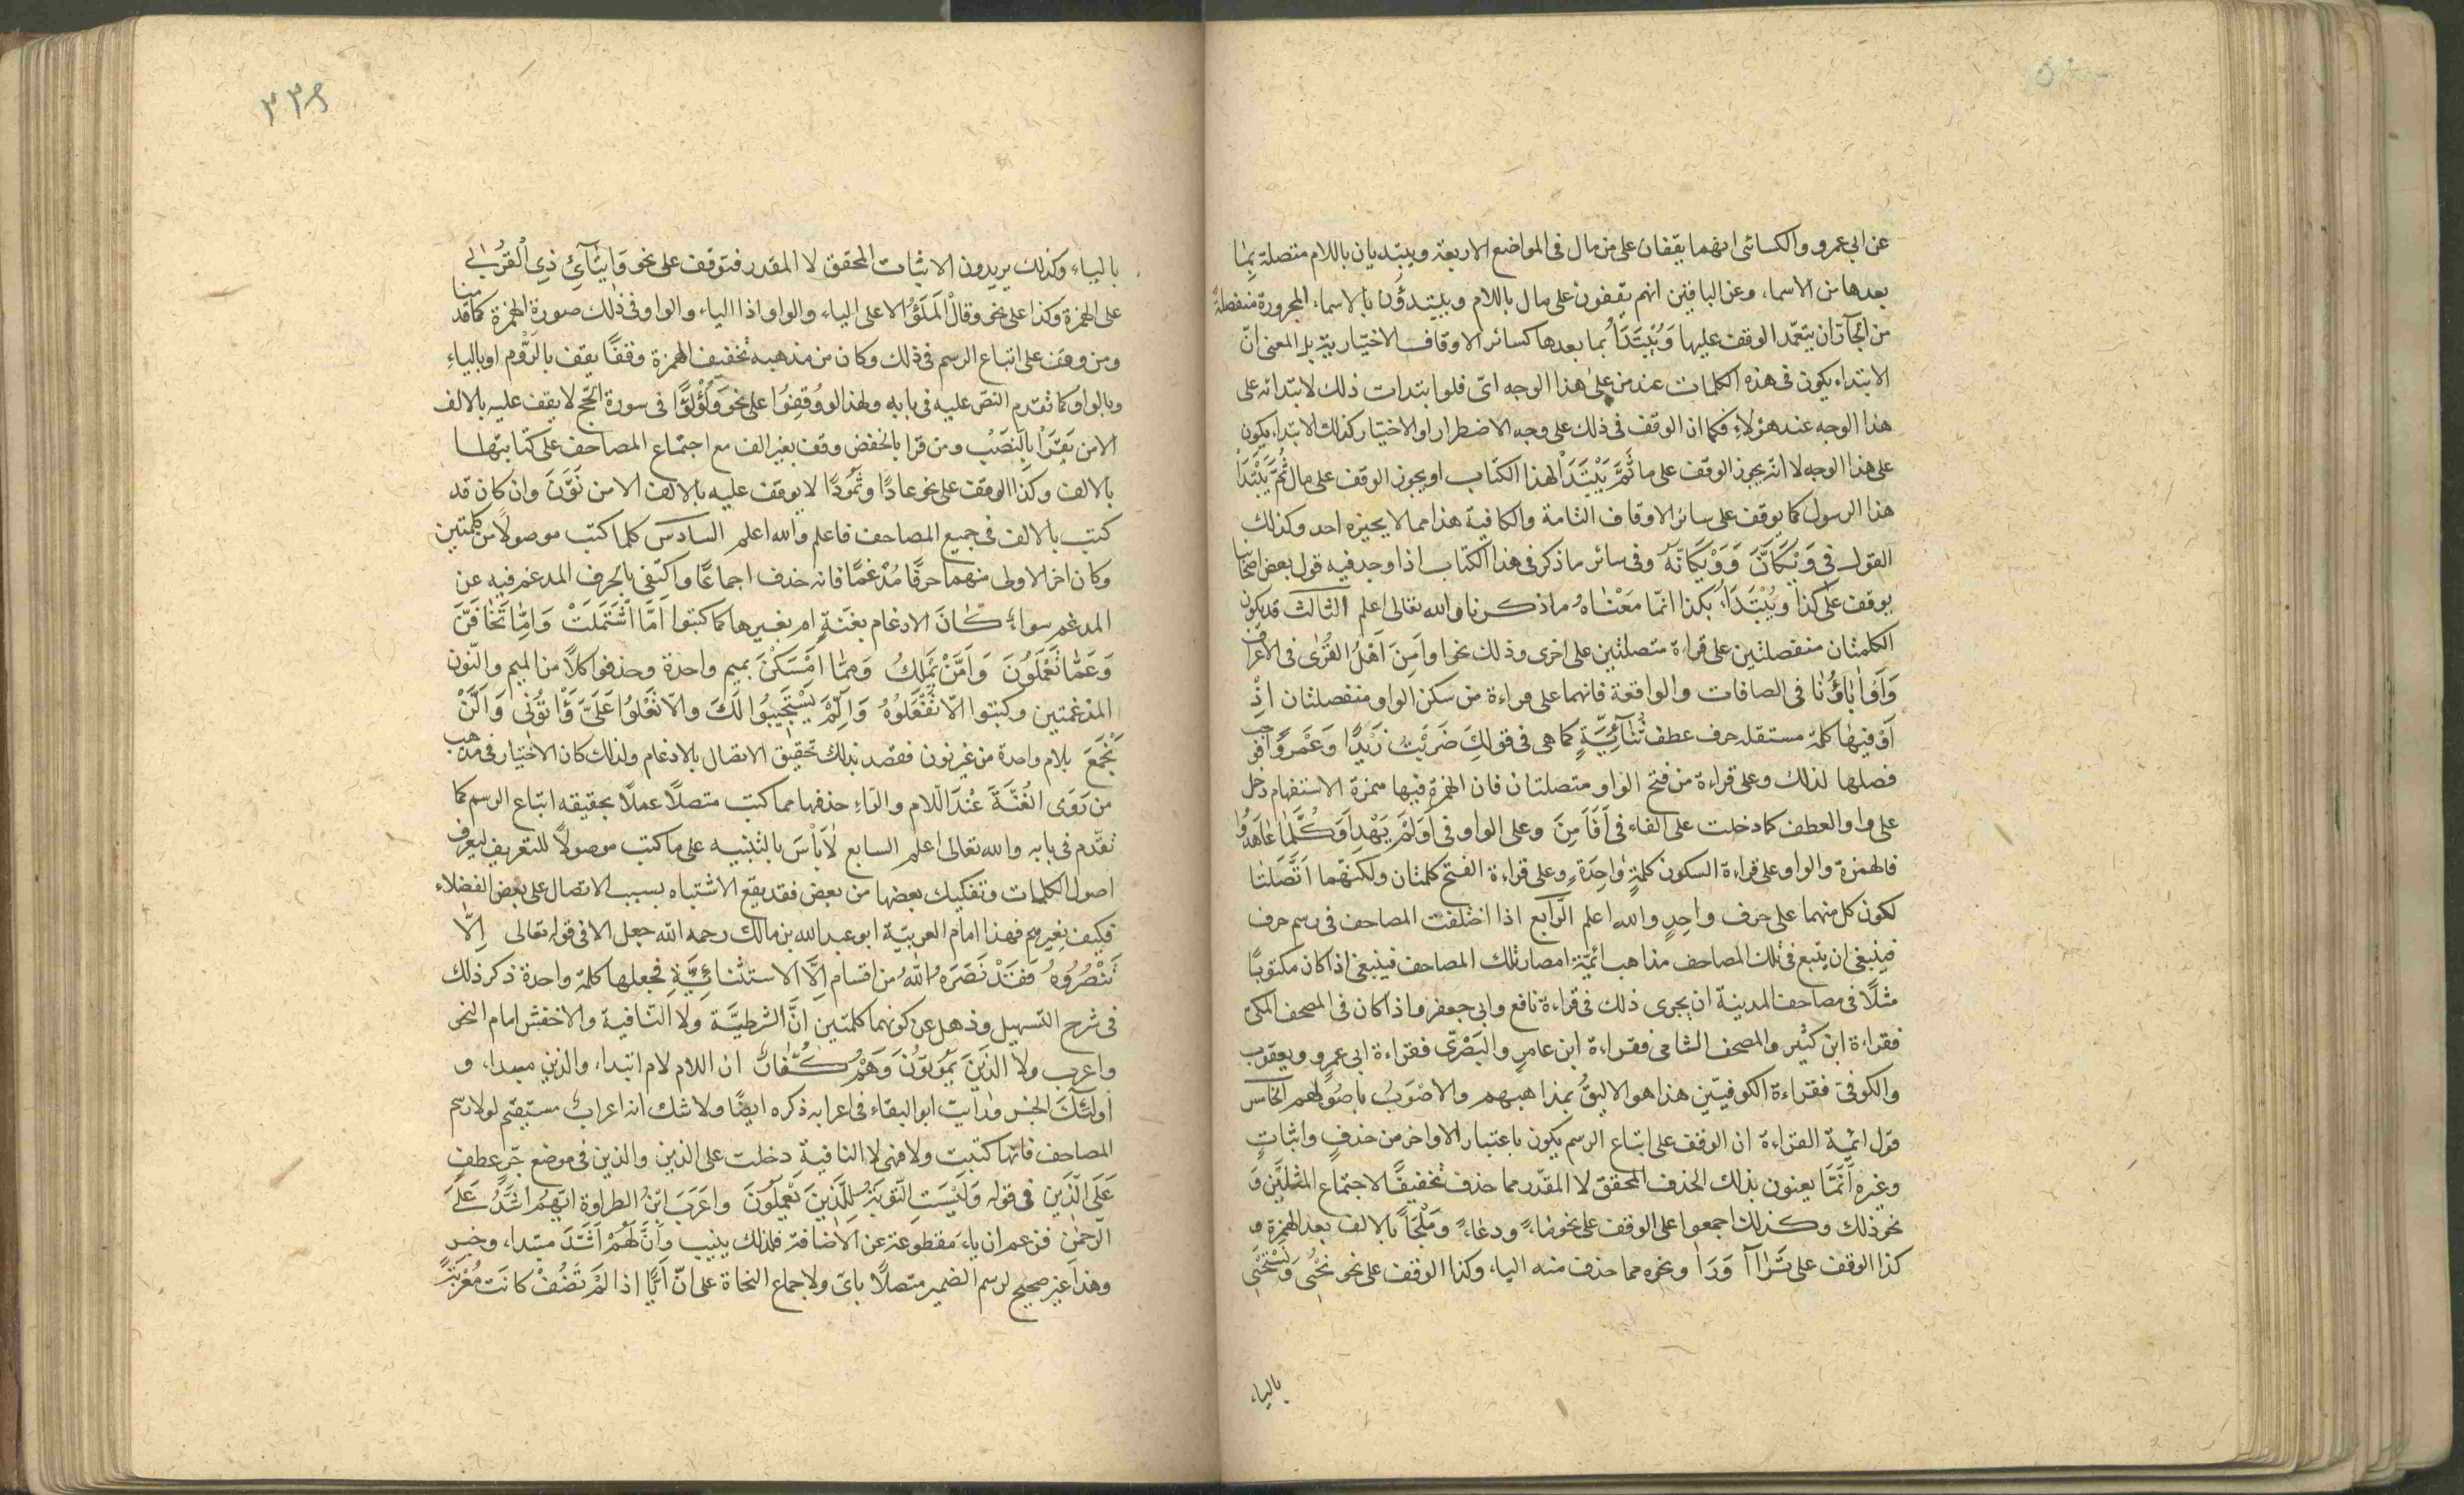 عن ابى عمرو والكسائى انهما يقفان على من مال فى المواضع الاربعة ويبتديان باللام متصلة بما
بعدها من الاسماء وعن الباقين انهم يقفون على مال باللام ويبتدؤن بالاسماء المجرورة منفصلة
من الجارّ ان يتعمّد الوقف عليها وَيُبْتَدَأُ بما بعدها كسائر الاوقاف الاختيارية بل المعنى انّ
الابتداء يكون فى هذه الكلمات عند من على هذا الوجه اى فلو ابتدات ذلك لابتداته على
هذا الوجه عند هؤلاءِ فكما ان الوقف فى ذلك على وجه الاضطرار او الاختيار كذلك الابتداء يكون
على هذا الوجه لا انه يجوز الوقف على ما ثُمَّ يَبْتَدَأْ لهذا الكتاب او يجوز الوقف على مال ثُمَّ يَبْتَدَأْ
هذا الرسول كما يوقف على سائر الاوقاف التامة والكافية هذا مما لا يجيزه احد وكذلك
القول فى وَيْكَانَّ وَوَيْكَانَّهُ وفى سائر ما ذكر فى هذا الكتاب اذا وجد فيه قول بعض اصحابنا
يوقف على كذا ويُبْتَدَاءُ بكذا انّما مَعْناهُ ما ذكرنا والله تعالى اعلم الثالث قد يكون
الكلمتان منفصلتين على قراءة متصلتين على اخرى وذلك نحو اوَاَمِنَ اَهْلُ القُرٰى فى الاعراف
وَآوَاٰبَاؤُنَا فى الصافات والواقعة فانهما على قراءة من سكن الواو منفصلتان اذْ
اَوْ فيهٰا كلمة مستقله حرف عطف ثُنٰآئِيَّةٍ كما هى فى قولِكَ ضَرَبْتُ زَيْدًا وَعَمْرًوا فوجب
فصلها لذلك وعلى قراءة من فتح الواو متصلتان فان الهمزة فيها همزة الاستفهام دخل
على واو العطف كما دخلت على الفاء فى اَفَاَمِنَ وعلى الواو فى اَوَلَمْ يَهْدِ اَوَكُلَّمَا عَاهَدُوا
فالهمزة والواو على قراءة السكون كلمةٍ وٰاحِدَةٍ وعلى قراءة الفتح كلمتان ولكنّهما اَتَّصَلَتٰا
لكون كل منهما على حرف واحِدٍ والله اعلم الرّابع اذا اختلفت المصاحف فى رسم حرف
فينبغى ان يتبع فى تلك المصاحف مذاهب ائمّة امصار تلك المصاحف فينبغى اذا كان مكتوبًا
مثلًا فى مصاحف المدينة ان يجرى ذلك فى قراءة نافع وابى جعفر واذا كان فى المصحف المكى
فقراءة ابن كثير والمصحف الشامى فقراءة ابن عامرٍ والبَصْرىّ فقراءة ابى عمرٍو ويعقوب
والكوفى فقراءة الكوفيّين هذا هو الاليقُ بمذاهبهم والاصْوَبُ باصُولهم الخامس
قول ائمة القراءة ان الوقف على اتباع الرسم يكون باعتبار الاواخر من حذفٍ واثباتٍ
وغيره اَنّمَا يعنون بذلك الحذف المحقق لا المقدّر مما حذف تخفيفًا لاجتماع المثلَيْن وَ
نحو ذلك وكذلك اجمعوا على الوقف على نحو ماءً ودعاءً وَمَلْجَأً بالالف بعد الهمزة و
كذا الوقف على تَرٰاآ وَرَاٰ ونحوه مما حذف منه الياء وكذا الوقف على نحو يُحْيِى وَيَسْتَحْيِى
بالياء
٣٣٩
بالياء وكذلك يريدون الاثبات المحقق لا المقدر فتوقف على نحو وَاِيتَآئِ ذِى اْلقُرْبٰى
على الهمزة وكذا على نحو وقالْ اَلمَلَؤُا لا على الياء والواو اذ الياء والواو فى ذلك صورة الهمزة كما قدمنا
ومن وقف على اتباع الرسم فى ذلك وكان من مذهبه تخفيف الهمزة وقفًا يقف بالرَّوم او بالياءِ
وبالواو كما تقدم النصّ عليه فى بابه ولهذا لو وُقِفُوا على نحو وَلُؤْلُؤًا فى سورة الحَجّ لا يقف عليه بالالف
الا من يَقْرَأْ بالنَصَبِ ومن قرا بالخفض وقف بغير الف مع اجتماع المصاحف على كتابتها
بالالف وكذا الوقف على نحو عادًا وثَمُودًا لا يوقف عليه بالالف الا من نَوَّنَ وان كان قد
كتب بالالف فى جميع المصاحف فاعلم والله اعلم السادس كلما كتب موصولًا من كلمتين
وكان اخر الاولى منهما حرفًا مُدْغمًا فانه حذف اجماعًا واكتفى بالحرف المدغم فيه عن
المدغم سواءٌ كانَ الادغام بغنةٍ ام بغيرها كما كتبوا اَمَّا اشْتَمَلَتْ وَاِمّٰا تَخٰافَنَّ
وَعَمّٰا تَعْمَلُونَ وَاَمَّنْ يَمْلِكُ وَمِمّٰا اَمْسَكْنَ بميم واحدة وحذفوا كلّا من الميم والنّون
المدغمتين وكتبوا اِلّا تَفْعَلُوهُ وَاِلَّمْ يَسْتَجِيبُوا لَكَ والاّ تَعْلُوا عَلَىَّ وَأْتُونٖى وَاَلَّنْ
نَجْمَعَ بلام واحدة من غير نون فقصد بذلك تحقيق الاتصال بالادغام ولذلك كان الاختيار فى مذهب
من رَوَى الغُنَّةَ عْنَدَ الّلام والرّاءِ حذفها مما كتب متصلًا عملًا بحقيقه اتباع الرسم كما
تقدّم فى بابه والله تعالى اعلم السابع لٰا بَأْسَ بالتنبيه على ما كتب موصولًا للتعريف ليعرف
اصول الكلمات وتفكيك بعضها من بعض فقد يقع الاشتباه بسبب الاتصال على بعض الفضلاء
فكيف بغيرهم فهذا امام العربيّة ابو عبد الله بن مالك رحمه الله جعل الا فى قوله تعالى اِلّا
تَنْصُرُوهُ فَقَدْ نَصَرَهُ اللهُ من اقسام اِلَّا الاستثنائِيَّةِ فجعلها كلمة واحدة ذكر ذلك
فى شرح التسهيل وذهل عن كونهما كلمتين انَّ الشرطيَّة ولا النّافية والاخفش امام النحو
واعرب ولا الذينَ يَمُوتوُنَ وَهُمْ كُفّٰارٌ ان اللام لام ابتداء والذين مبتدا، و
اُولئكَ الخبر ورايت ابو البقاء فى اعرابه ذكره ايضًا ولا شك انه اعرابٌ مستقيم لولا رسم
المصاحف فانها كتبت ولا فهى لا النافية دخلت على الذين والذين فى موضع جّرٍ عطف
عَلَى الّذين فى قوله وَلَيْسَتِ التَّوْبَةُ لِلَّذينَ يَعْمَلُونَ واعَرَبَ ابْنُ الطراوة ايّهُم اَشَدُّ عَلَى
الَّرحمٰن فزعم ان اىّ مقطوعة عن الْاضافة فلذلك بنيت وَاَنَّ هُمْ اَشَدّ مبتدا، وخبر
وهذا غير صحيح لرسم الضمير متصلًا باىّ ولاجماع النحاة على انّ اَيًّا اذا لَمْ تُضَفْ كانَت مُعْرَبَةً